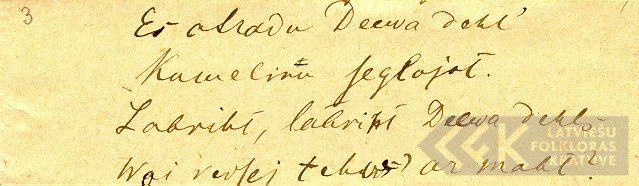 3
Es atradu Deewa dehl'
Kumeliņu seglojot.
Labriht, labriht Deewa dehls,
Wai redsej tehws ar maht?
LATVIEŠU
FOLKLORAS
KRĀTUVE